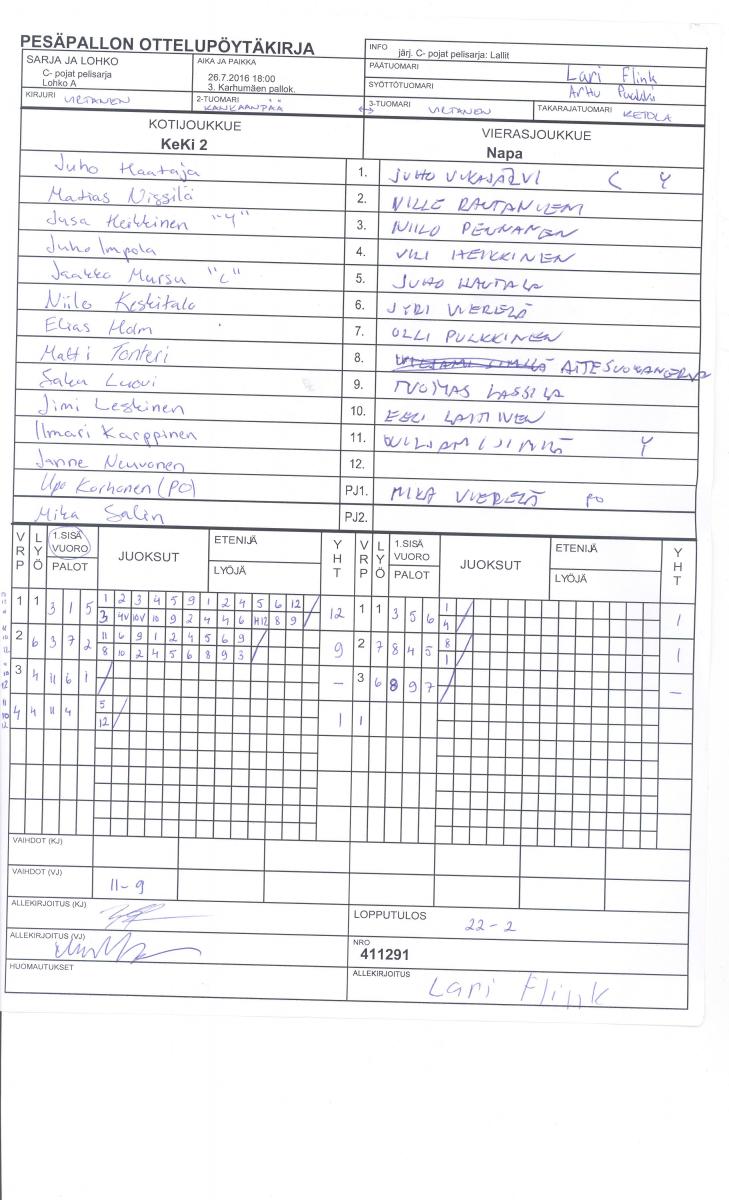 PESÄPALLON OTTELUPÖYTÄKIRJA
INFO järj. C- pojat pelisarja: Lallit
SARJA JA LOHKO
C- pojat pelisarja
Lohko A
AIKA JA PAIKKA
26.7.2016 18:00
3. Karhumäen pallok.
PÄÄTUOMARI Lari Flink
SYÖTTÖTUOMARI
KIRJURI VIRTANEN
2-TUOMARI KANKAANPÄÄ
3-TUOMARI VIRTANEN
TAKARAJATUOMARI KETOLA
KOTIJOUKKUE
KeKi 2
VIERASJOUKKUE
Napa
Juho Haataja 1. JUHO C Y
Matias Nissilä 2. VILLE
Jusa Heikkinen "Y" 3. NIILO PENNANEN
Juho Impola 4. VILI HEIKKINEN
Jaakko Mursu "C" 5. JUHO HAUTALA
Niilo Keskitalo 6. JYRI VIERELÄ
Elias Holm 7. OLLI PULKKINEN
Matti Tonteri 8.
Saku Luovi 9. TUOMAS LASSILA
Jimi Leskinen 10. EELI LAITINEN
Ilmari Karppinen 11. Y
Janne Neuvonen 12.
Upo Korhonen (PO) PJ1. MIKA VIERELÄ PO
Mika Salin PJ2.
VRP LYÖ 1.SISÄ VUORO PALOT JUOKSUT ETENIJÄ LYÖJÄ YHT VRP LYÖ 1.SISÄ VUORO PALOT JUOKSUT ETENIJÄ LYÖJÄ YHT
1 1 3 1 5 1 2 3 4 5 9 1 2 4 5 6 12 12 1 1 3 5 6 1 1
3 4V 10V 10 9 2 4 4 6 H12 8 9 4
2 6 3 7 2 11 6 9 1 2 4 5 6 9 9 2 7 8 4 5 8 1
8 10 2 4 5 6 8 9 3 1
3 4 11 6 1 – 3 6 8 9 7 –
4 4 11 4 5 1 1
12
VAIHDOT (KJ)
VAIHDOT (VJ) 11-9
ALLEKIRJOITUS (KJ)
LOPPUTULOS 22-2
ALLEKIRJOITUS (VJ)
NRO
411291
HUOMAUTUKSET
ALLEKIRJOITUS Lari Flink